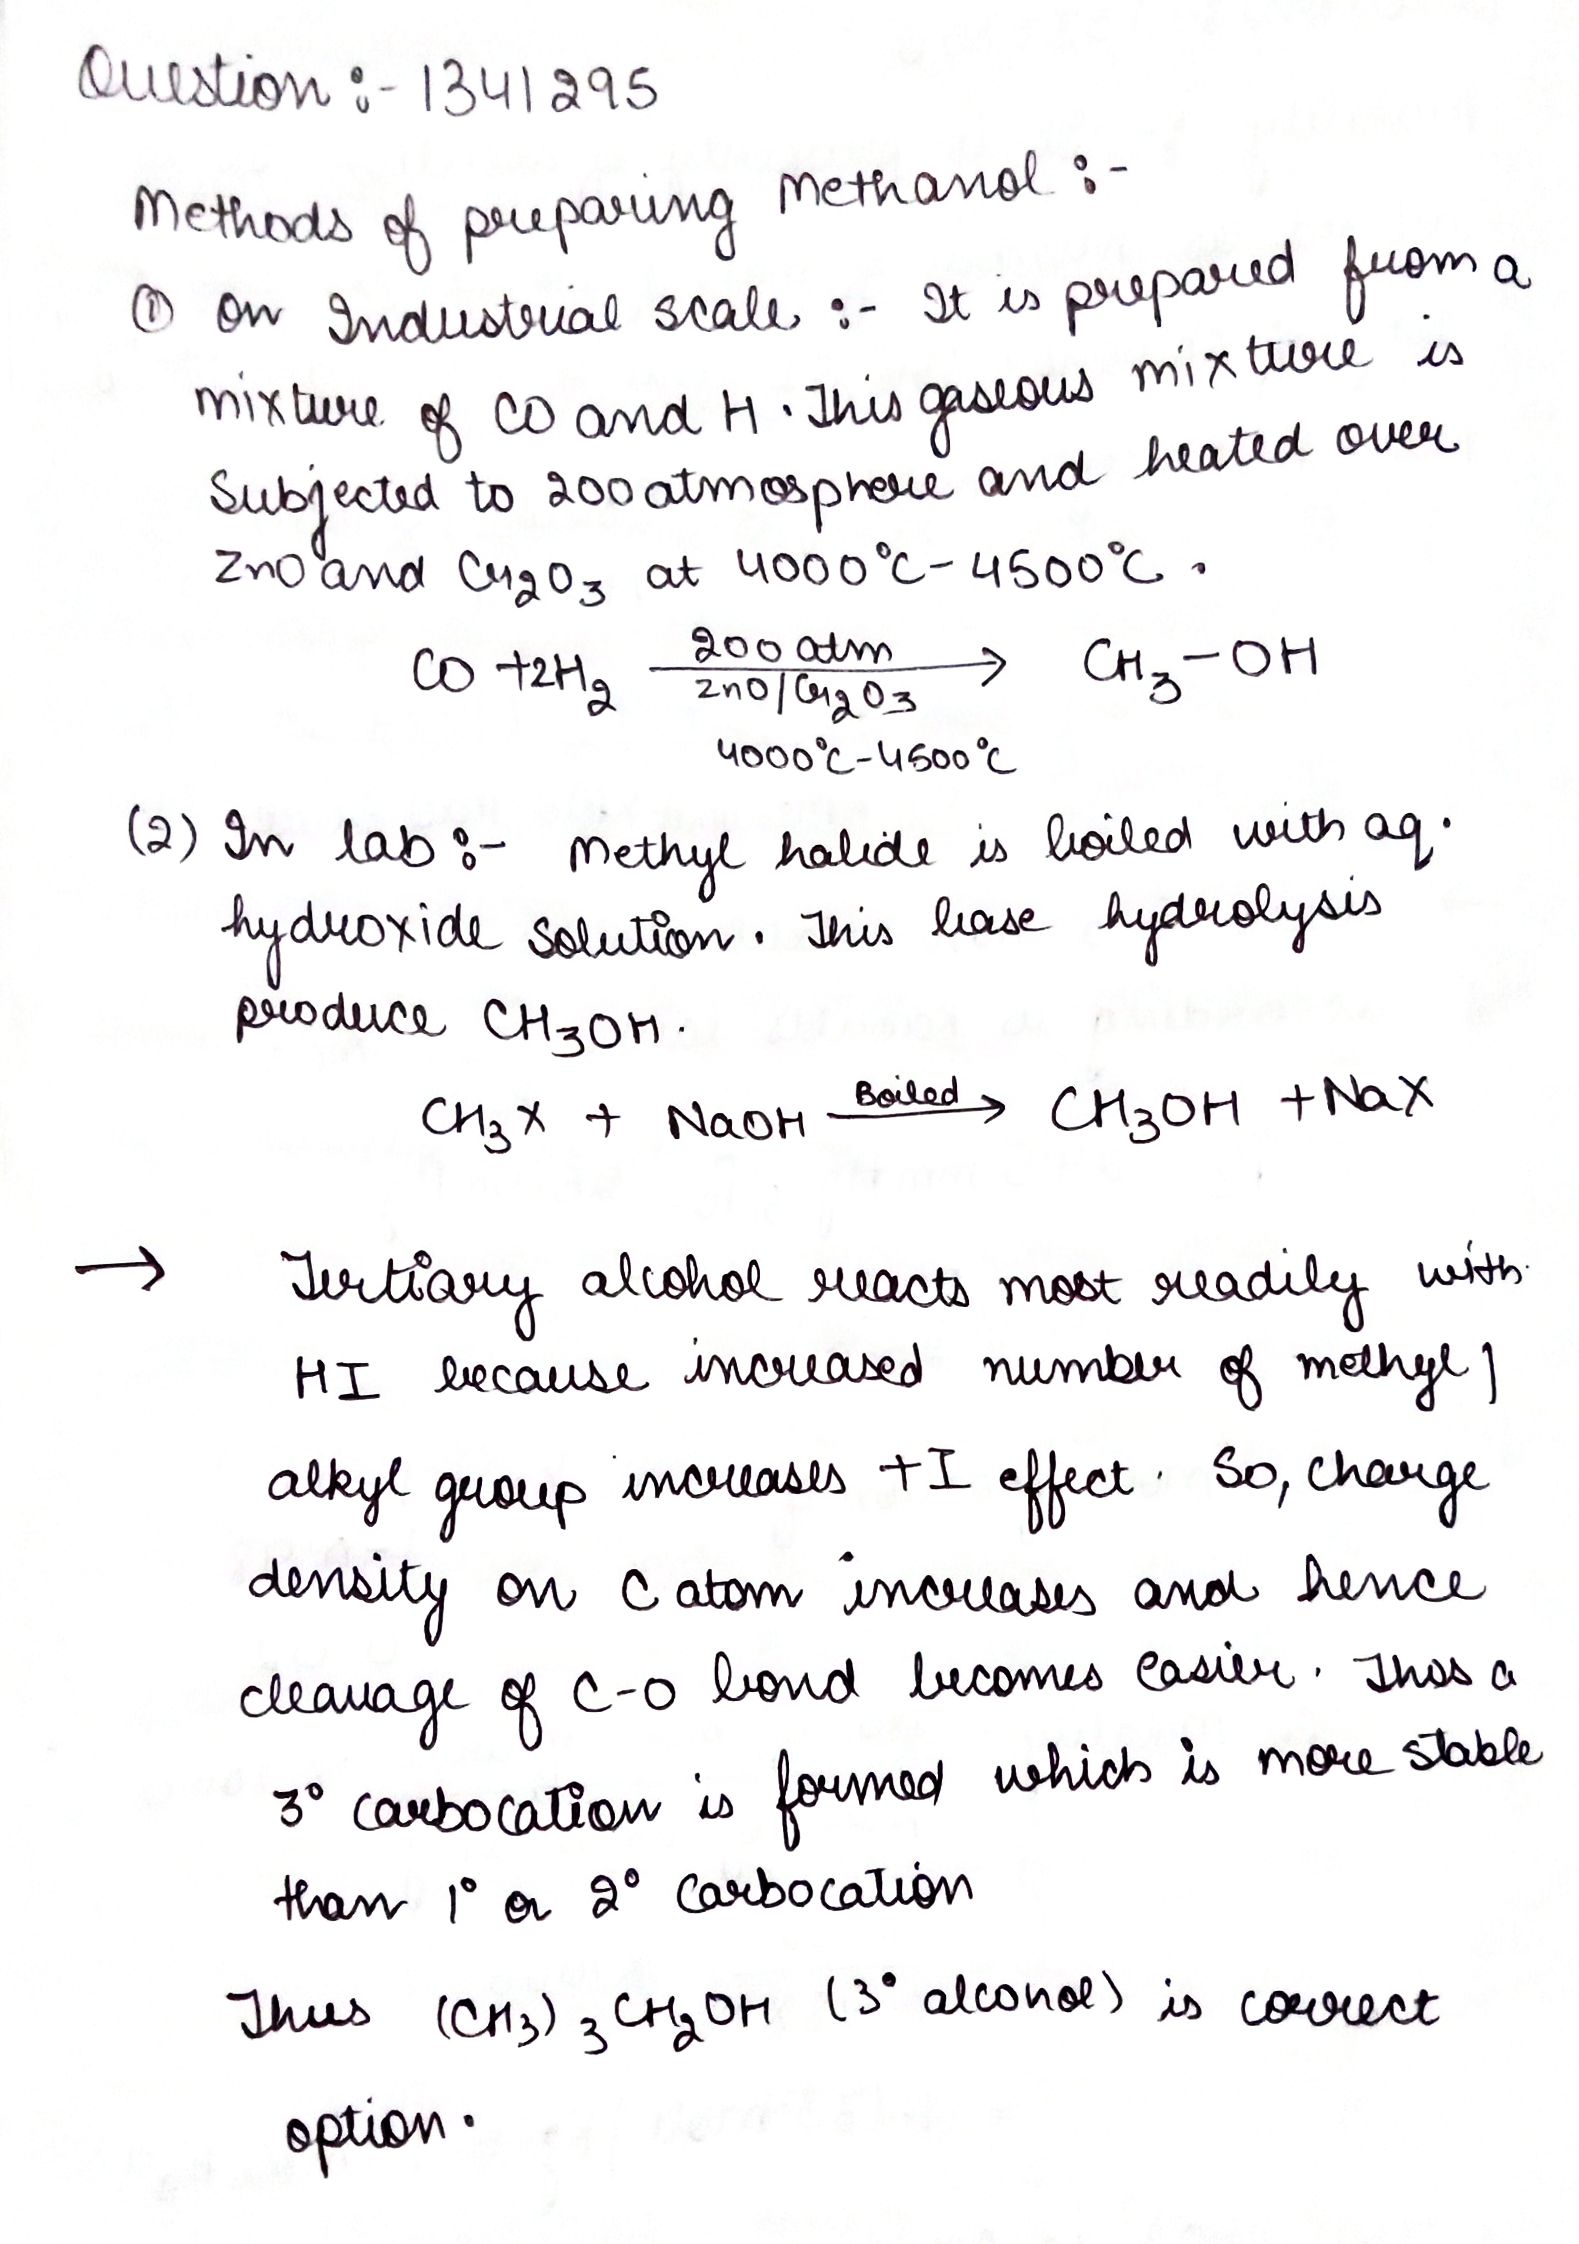 Question :- 1341295
Methods of preparing Methanol :-
① On Industrial scale :- It is prepared from a
mixture of CO and H. This gaseous mixture is
Subjected to 200 atmosphere and heated over
ZnO and Cr2O3 at 4000°C - 4500°C.
CO + 2H2 200 atm ZnO/Cr2O3 → CH3-OH
4000°C-4500°C
(2) In lab :- Methyl halide is boiled with aq.
hydroxide solution. This base hydrolysis
produce CH3OH.
CH3X + NaOH Boiled → CH3OH + NaX
→ Tertiary alcohol reacts most readily with
HI because increased number of methyl /
alkyl group increases +I effect. So, charge
density on C atom increases and hence
cleavage of C-O bond becomes easier. Thus a
3° carbocation is formed which is more stable
than 1° or 2° carbocation
Thus (CH3)3CH2OH (3° alcohol) is correct
option.